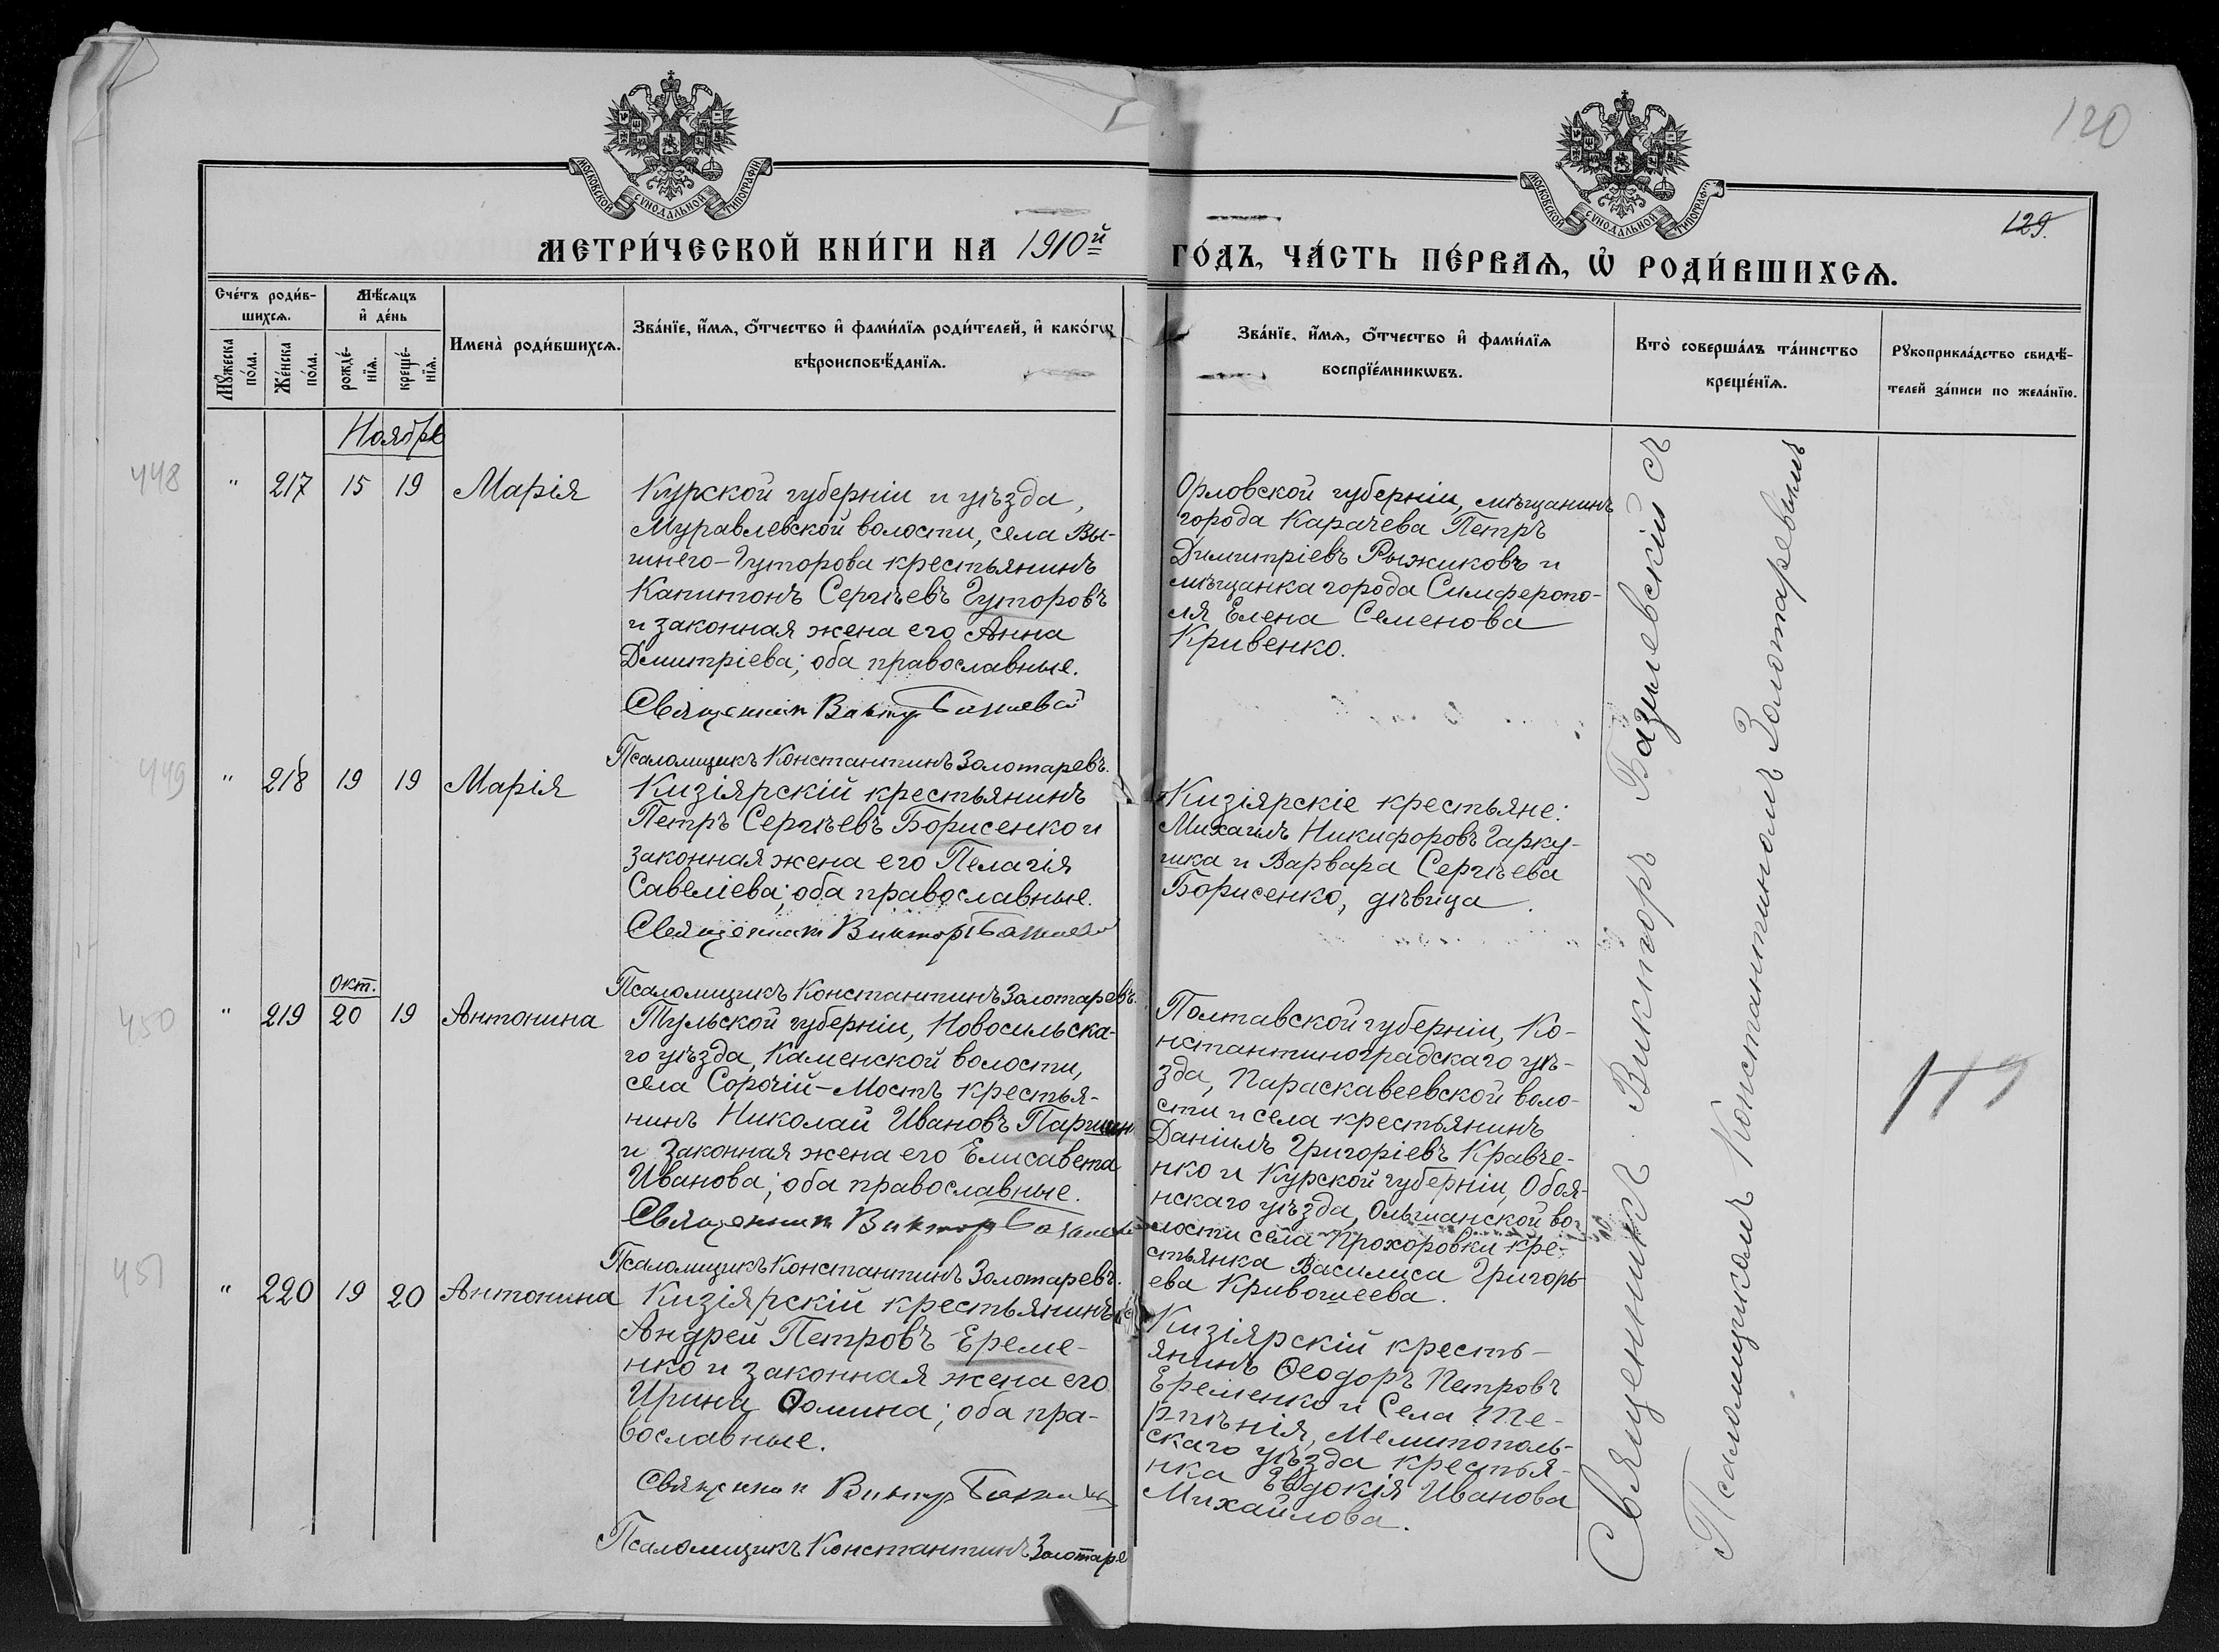 120
129.
МОСКОВСКОЙ СѴНОДАЛЬНОЙ ТИПОГРАФІИ
МОСКОВСКОЙ СѴНОДАЛЬНОЙ ТИПОГРАФІИ
МЕТРИ́ЧЕСКОЙ КНИ́ГИ НА 1910й ГО́ДЪ, ЧА́СТЬ ПЕ́РВАѦ, Ѽ РОДИ́ВШИХСѦ.
Сче́тъ роди́в-
шихсѧ.
Мꙋ́жеска по́ла.
Же́нска по́ла.
Мѣ́сѧцъ
и҆ де́нь
рожде́-
нїѧ.
креще́-
нїѧ.
Имена̀ роди́вшихсѧ.
Зва́нїе, и҆́мѧ, ѻ҆́тчество и҆ фами́лїѧ роди́телей, и҆ како́гѡ
вѣроисповѣ́данїѧ.
Зва́нїе, и҆́мѧ, ѻ҆́тчество и҆ фами́лїѧ
воспрїе́мникѡвъ.
Кто̀ соверша́лъ та́инство
креще́нїѧ.
Рꙋкоприкла́дство свидѣ́-
телей за́писи по жела́нїю.
Ноябрь
448
" 217 15 19 Марія
Курской губерніи и уѣзда,
Муравлевской волости, села Вы-
шнего-Гуторова крестьянинъ
Капитонъ Сергѣевъ Гуторовъ
и законная жена его Анна
Дмитріева; оба православные.
Священник Виктор Базилевский
Псаломщикъ Константинъ Золотаревъ.
Орловской губерніи, мѣщанинъ
города Карачева Петръ
Димитріевъ Рыжиковъ и
мѣщанка города Симферопо-
ля Елена Семенова
Кривенко.
449
" 218 19 19 Марія
Кизіярскій крестьянинъ
Петръ Сергѣевъ Борисенко и
законная жена его Пелагія
Савеліева; оба православные.
Священник Виктор Базилевский
Псаломщикъ Константинъ Золотаревъ.
Кизіярскіе крестьяне:
Михаилъ Никифоровъ Гарку-
шка и Варвара Сергѣева
Борисенко, дѣвица.
450
окт.
" 219 20 19 Антонина
Тульской губерніи, Новосильска-
го уѣзда, Каменской волости,
села Сорочій-Мостъ крестья-
нинъ Николай Ивановъ Паршин
и законная жена его Елисавета
Иванова; оба православные.
Священник Виктор Базилевский
Псаломщикъ Константинъ Золотаревъ.
Полтавской губерніи, Ко-
нстантиноградскаго уѣ-
зда, Параскавеевской воло-
сти и села крестьянинъ
Даніилъ Григоріевъ Кравче-
нко и Курской губерніи, Обоя-
нскаго уѣзда, Ольшанской во-
лости села Прохоровки кре-
стьянка Василиса Григорь-
ева Кривошеева.
451
" 220 19 20 Антонина
Кизіярскій крестьянинъ
Андрей Петровъ Ереме-
нко и законная жена его
Ирина Ѳомина; оба пра-
вославные.
Священник Виктор Базилевский
Псаломщикъ Константинъ Золотаре
Кизіярскій кресть-
янинъ Ѳеодоръ Петровъ
Еременко и села Те-
рпѣнія, Мелитополь-
скаго уѣзда крестья-
нка Евдокія Иванова
Михайлова.
Священникъ Викторъ Базилевскій съ
Псаломщикомъ Константиномъ Золотаревымъ